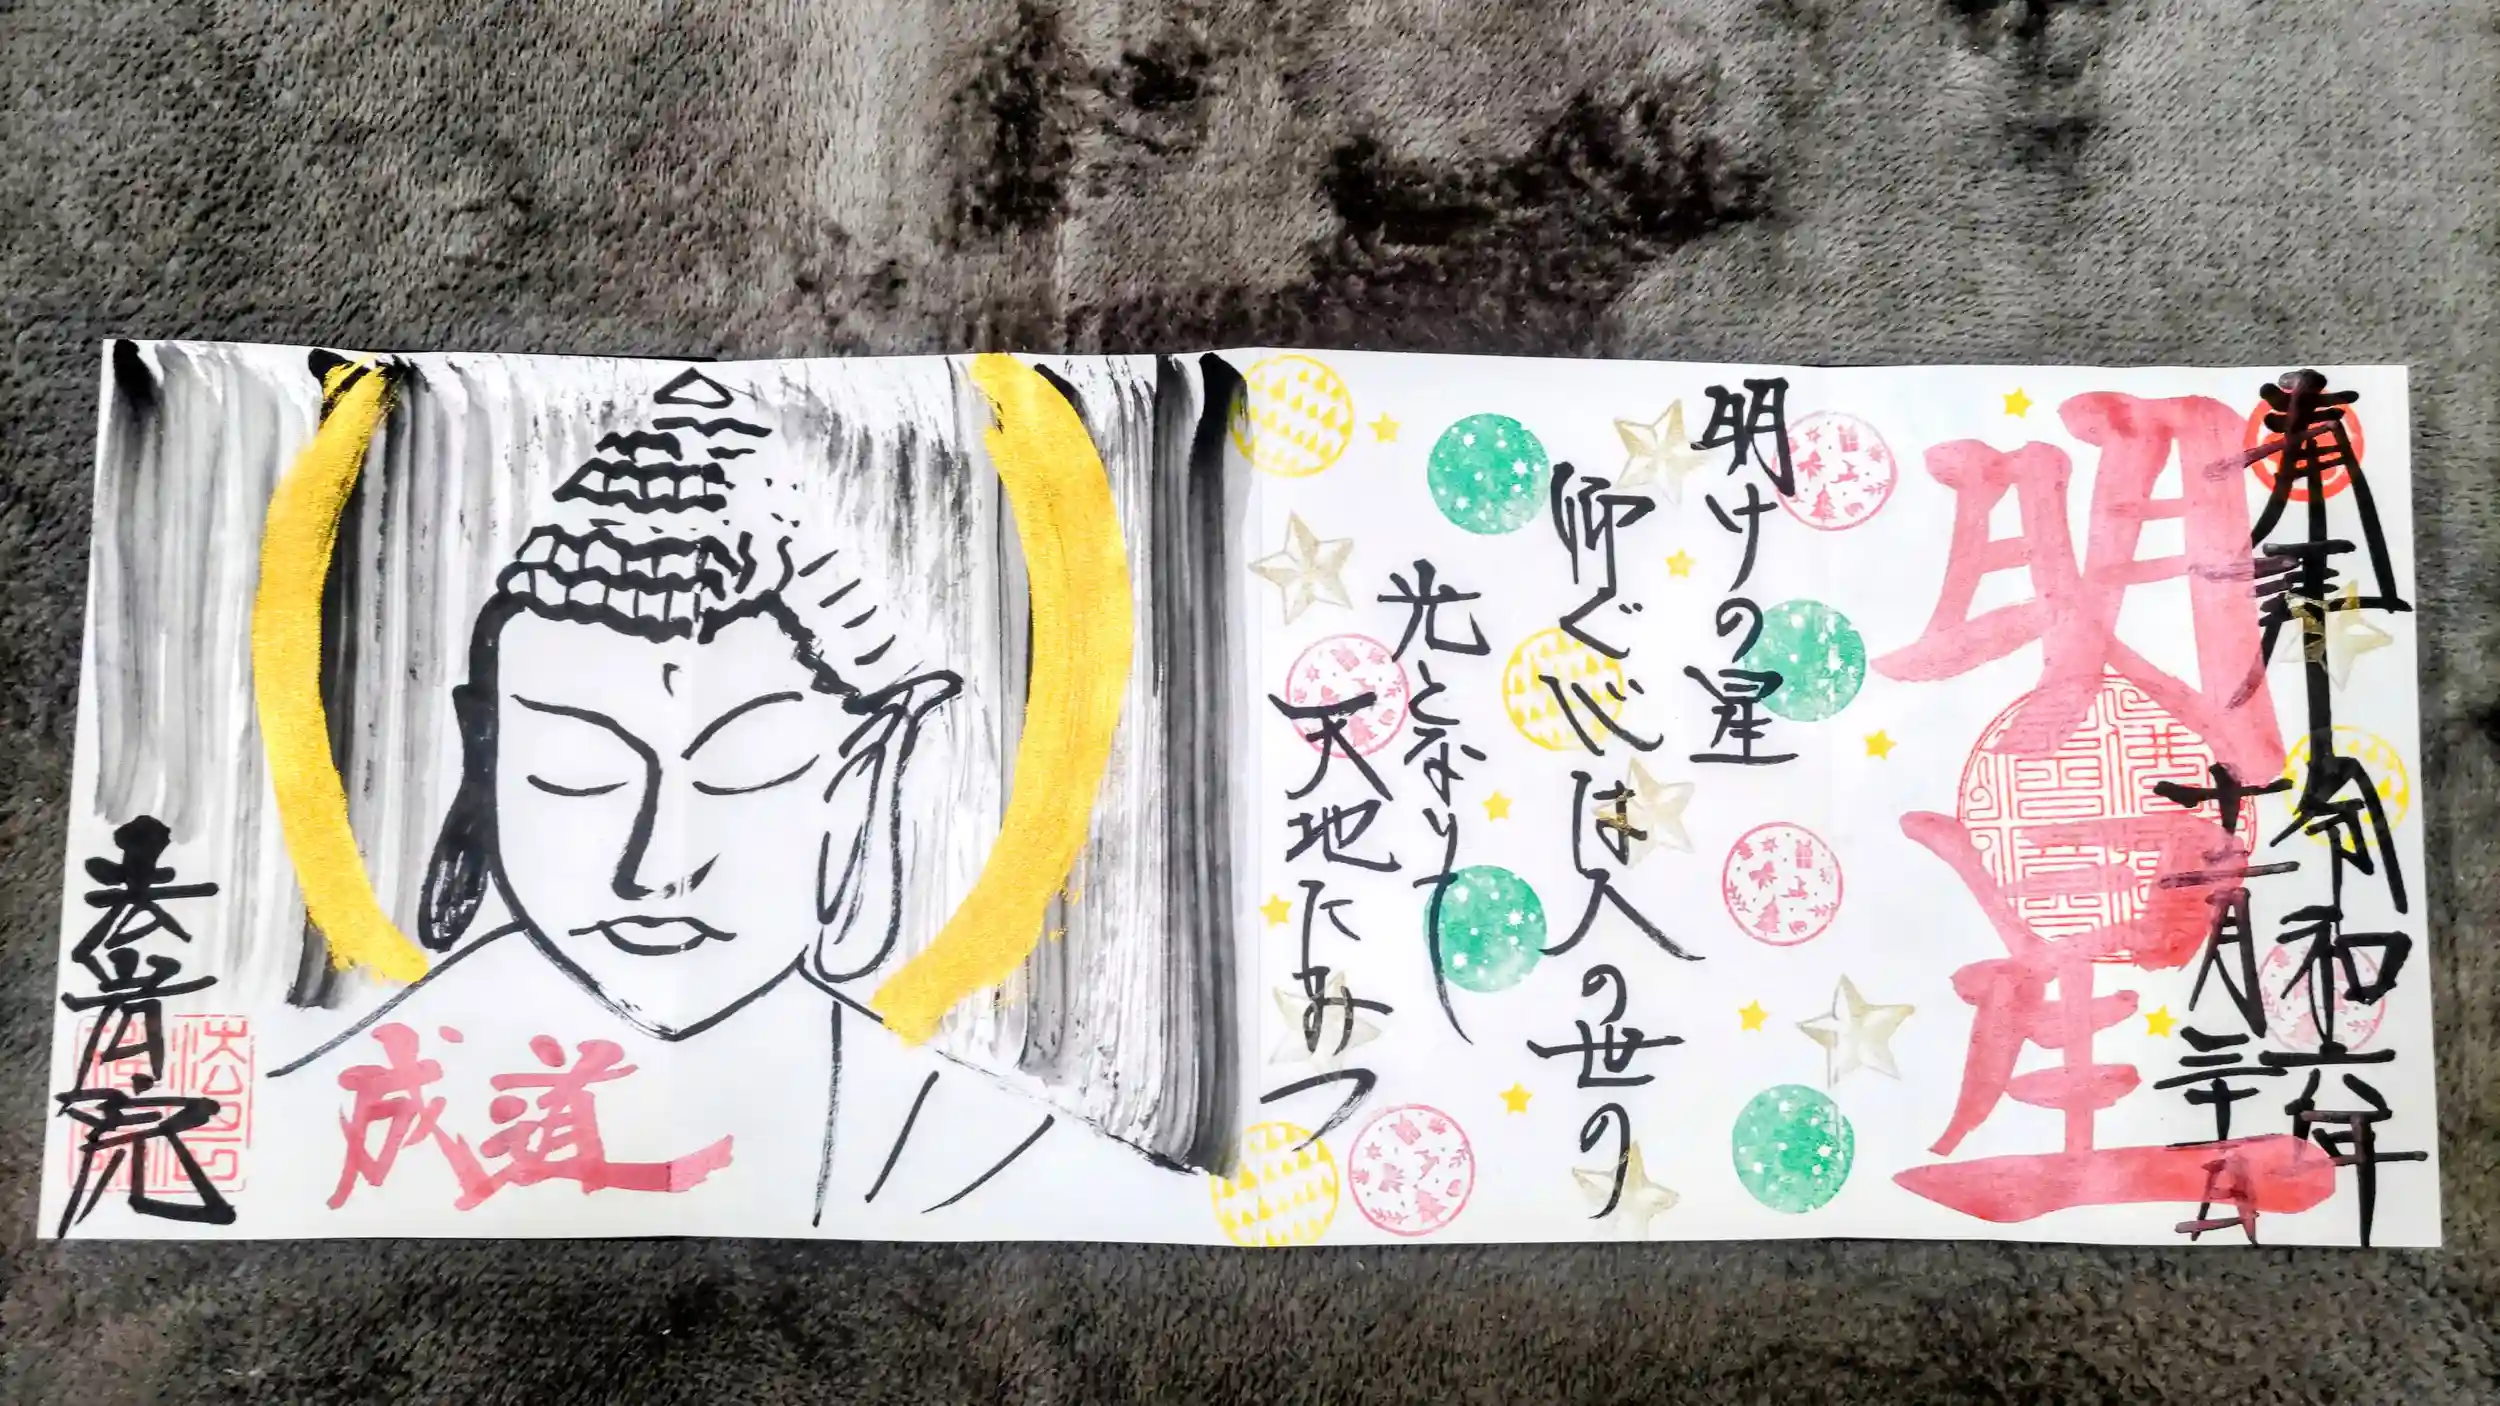 奉拝 令和六年
十二月三十日
明星
明けの星
仰ぐ心は人の世の
光となりて
天地にみつ
成道